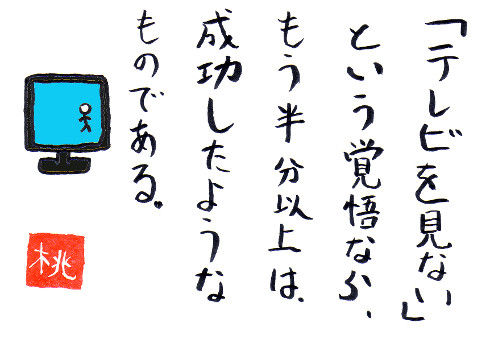 「テレビを見ない」
という覚悟なら、
もう半分以上は、
成功したような
ものである。
桃